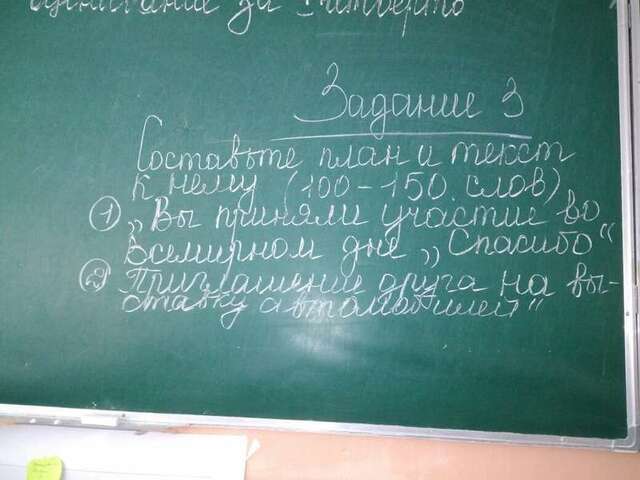 оценивание за I четверть
Задание 3
Составьте план и текст
к нему (100-150 слов)
① „Вы приняли участие во
Всемирном дне „Спасибо"
② Приглашение друга на вы-
ставку автомобилей"